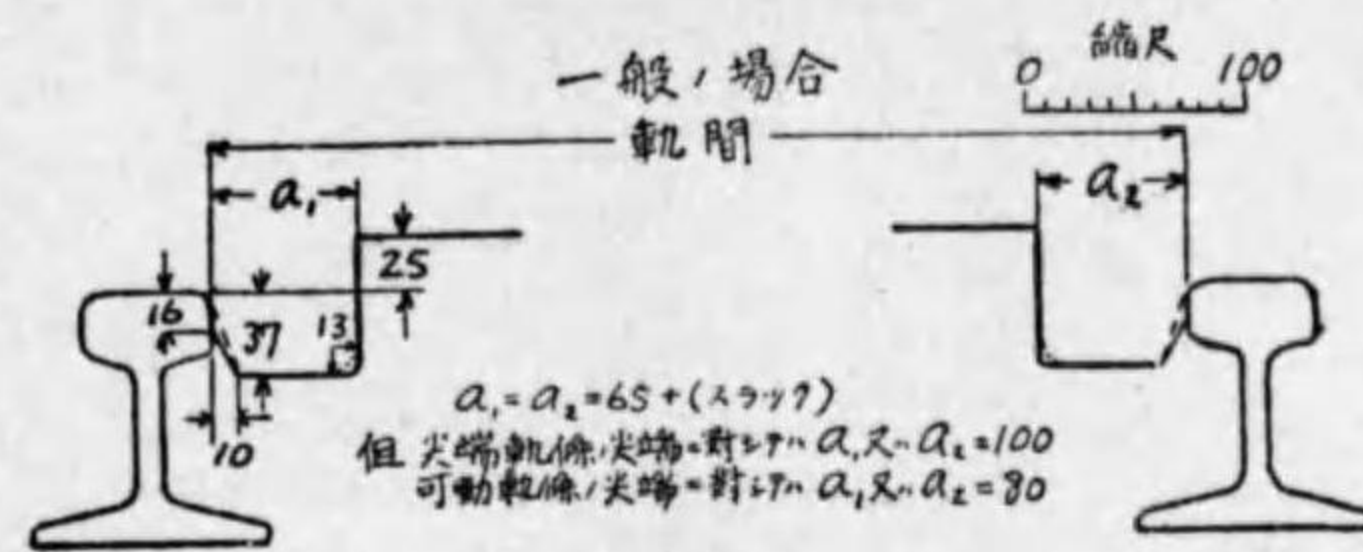 一般ノ場合
縮尺
0 100
軌間
a₁
a₂
25
16
37
13
10
a₁=a₂=65+(スラック)
但 尖端軌條ノ尖端ニ對シテハ a₁又ハa₂=100
可動軌條ノ尖端ニ對シテハ a₁又ハa₂=80